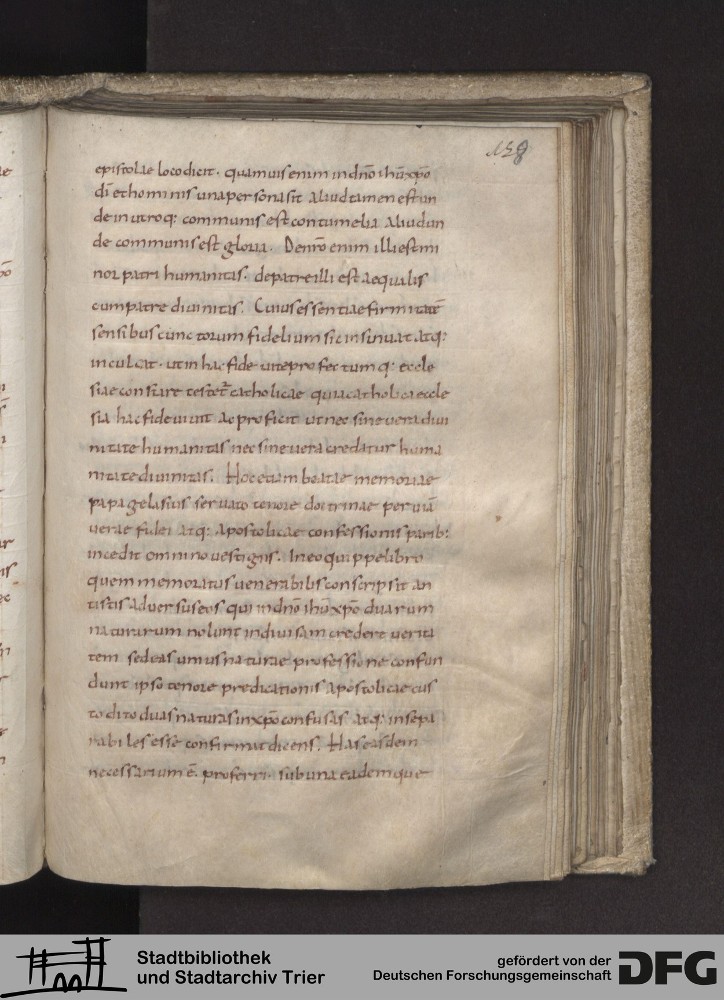 158
epistolae loco dicit. quamuis enim in dn̄o ihū xp̄o
dī et hominis una persona sit aliud tamen est un
de in utroq: communis est contumelia aliud un
de communis est gloria. De nr̄o enim illi est mi
nor patri humanitas. de patre illi est aequalis
cum patre diuinitas. Cuius essentiae firmitatē
sensibus cunctorum fidelium sic insinuat atq:
inculcat. ut in hac fide uitę profectumq: eccle
siae constare testet catholicae quia catholica eccle
sia hac fide uiuit ac proficit ut nec sine uera diui
nitate humanitas nec sine uera credatur huma
nitate diuinitas. Hoc etiam beatae memoriae
papa gelasius seruato tenore doctrinae per uiā
uerae fidei atq: apostolicae confessionis parib:
incedit omnino uestigiis. In eo quippe libro
quem memoratus uenerabilis conscripsit an
tistis aduersus eos qui in dn̄o ihū xp̄o duarum
naturarum nolunt indiuisam credere uerita
tem sed eas unius naturae professione confun
dunt ipso tenore predicationis apostolicae cus
todito duas naturas in xp̄o confusas atq: insepa
rabiles esse confirmat dicens. Has easdem
necessarium ē. proferri. sub una eademque
Stadtbibliothek
und Stadtarchiv Trier
gefördert von der
Deutschen Forschungsgemeinschaft
DFG